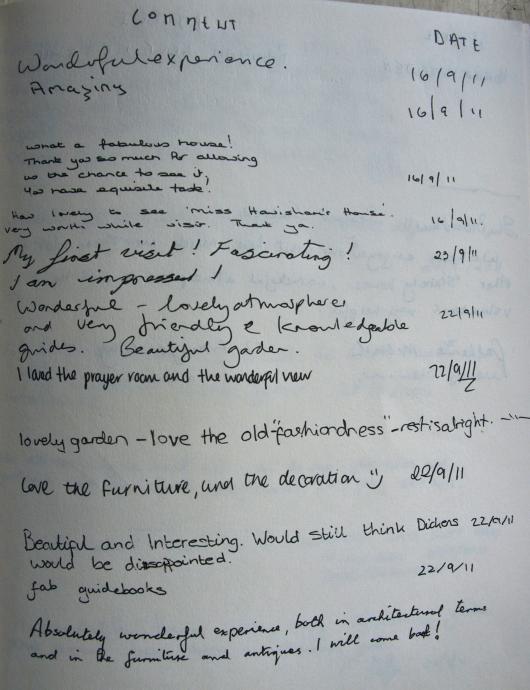 COMMENT DATE
Wonderful experience. 16/9/11
Amazing 16/9/11
What a fabulous house!
Thank you so much for allowing
us the chance to see it,
You have equisite taste. 16/9/11
How lovely to see 'Miss Havisham's House'. 16/9/11.
very worth while visit. Thank ya.
My first visit! Fascinating! 23/9/11
I am impressed!
Wonderful - lovely atmosphere 22/9/11
and very friendly & knowledgeable
guides. Beautiful garden.
I loved the prayer room and the wonderful view 22/9/11
lovely garden - love the old "fashiordness" - rest is alright. -"-
Love the furniture, and the decoration 22/9/11
Beautiful and Interesting. Would still think Dickens 22/9/11
would be dissapointed.
fab guidebooks 22/9/11
Absolutely wonderful experience, both in architectural terms
and in the furniture and antiques. I will come back!